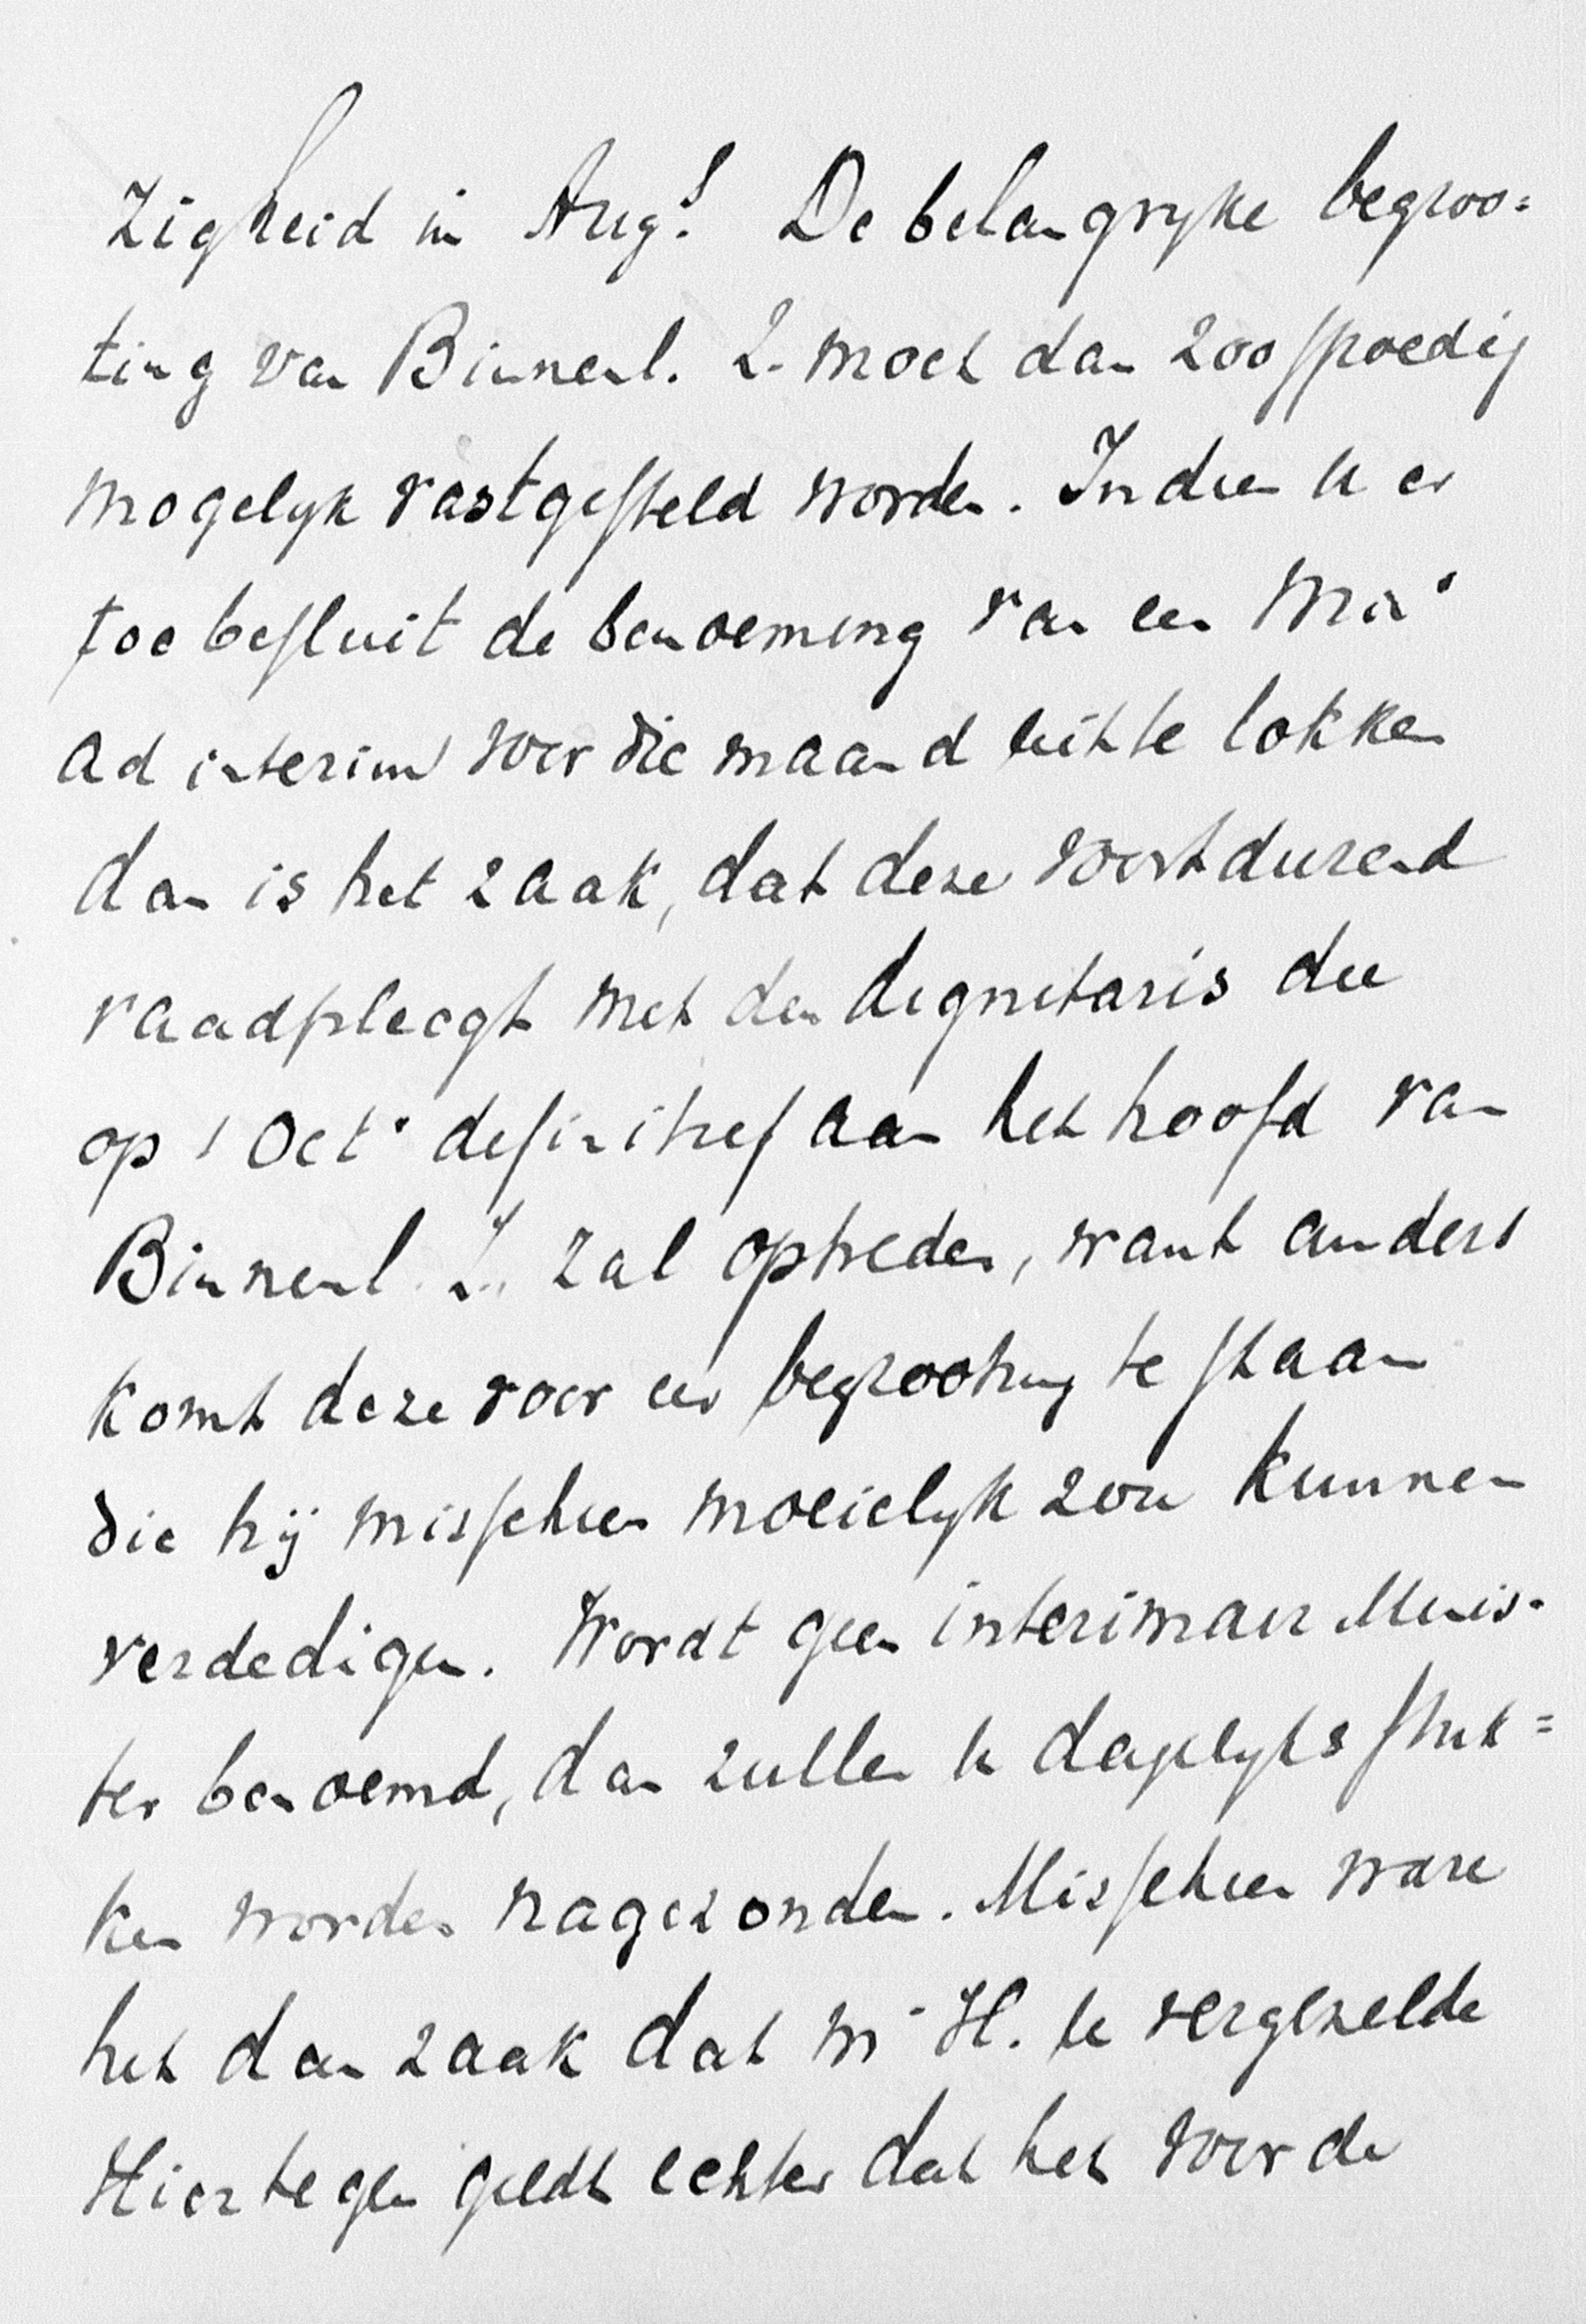 zigheid in Augs. De belangryke begroo=
ting van Binnenl. Z. moet dan zoo spoedig
mogelyk vastgesteld worden. Indien u er
toe besluit de benoeming van een Min.
ad interim voor die maand uit te lokken
dan is het zaak, dat deze voortdurend
raadpleegt met den dignitaris die
op 1 Oct. definitief aan het hoofd van
Binnenl. Z. zal optreden, want anders
komt deze voor een begrooting te staan
die hij misschien moeielyk zou kunnen
verdedigen. Wordt geen interimair Minis-
ter benoemd, dan zullen u dagelyks stuk=
ken worden nagezonden. Misschien ware
het dan zaak dat Mr H. u vergezelde
Hiertegen geldt echter dat het voor de